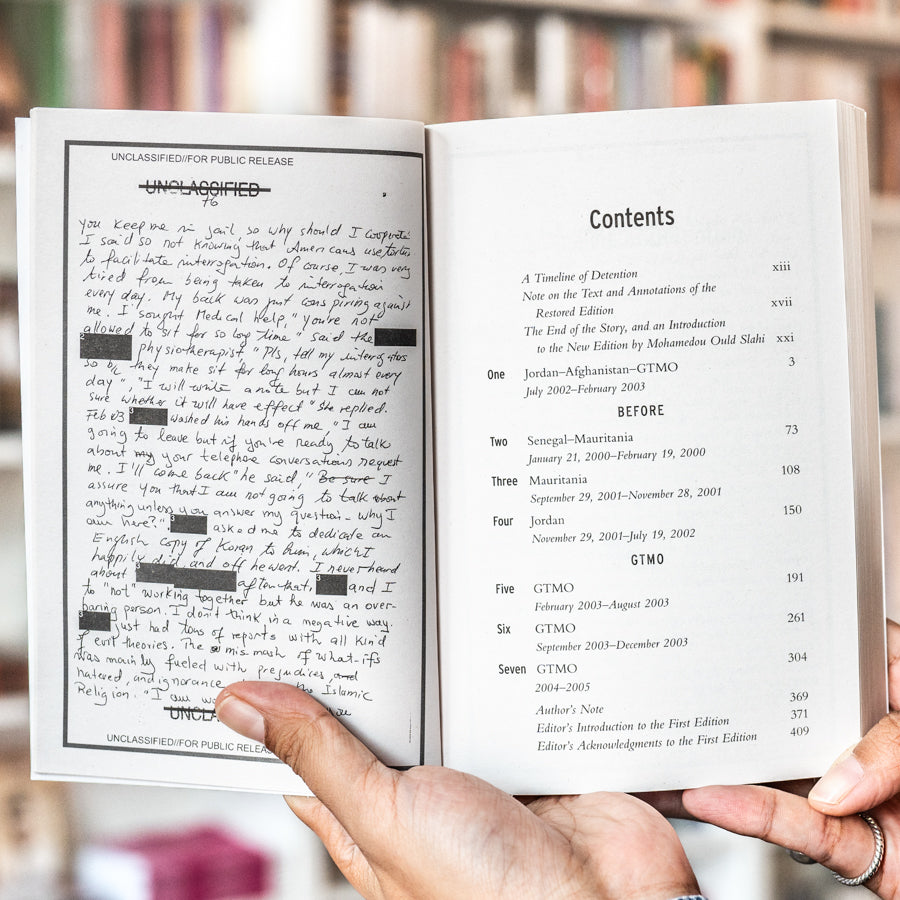 UNCLASSIFIED//FOR PUBLIC RELEASE
UNCLASSIFIED
76
you keep me in jail so why should I cooperate
I said so not knowing that Americans use torture
to facilitate interrogation. Of course, I was very
tired from being taken to interrogation
every day. My back was just conspiring against
me. I sought Medical help, "you're not
allowed to sit for so long time" said the
physiotherapist, "Pls, tell my interrogators
so b/c they make sit for long hours almost every
day", "I will write a note but I am not
sure whether it will have effect" she replied.
Feb 03 washed his hands off me, "I am
going to leave but if you're ready to talk
about my your telephone conversations request
me. I'll come back" he said, "Be sure I
assure you that I am not going to talk about
anything unless you answer my question - why I
am here?". asked me to dedicate an
English copy of Koran to him, which I
happily did, and off he went. I never heard
about after that, and I
to "not" working together but he was an over-
paring person. I don't think in a negative way.
just had tons of reports with all kind
of evil theories. The mis mash of what-ifs
was mainly fueled with prejudices, and
hatered, and ignorance the Islamic
Religion. "I am
UNCLA
UNCLASSIFIED//FOR PUBLIC RELEASE
Contents
A Timeline of Detention xiii
Note on the Text and Annotations of the
Restored Edition xvii
The End of the Story, and an Introduction
to the New Edition by Mohamedou Ould Slahi xxi
One Jordan–Afghanistan–GTMO 3
July 2002–February 2003
BEFORE
Two Senegal–Mauritania 73
January 21, 2000–February 19, 2000
Three Mauritania 108
September 29, 2001–November 28, 2001
Four Jordan 150
November 29, 2001–July 19, 2002
GTMO
Five GTMO 191
February 2003–August 2003
Six GTMO 261
September 2003–December 2003
Seven GTMO 304
2004–2005
Author's Note 369
Editor's Introduction to the First Edition 371
Editor's Acknowledgments to the First Edition 409